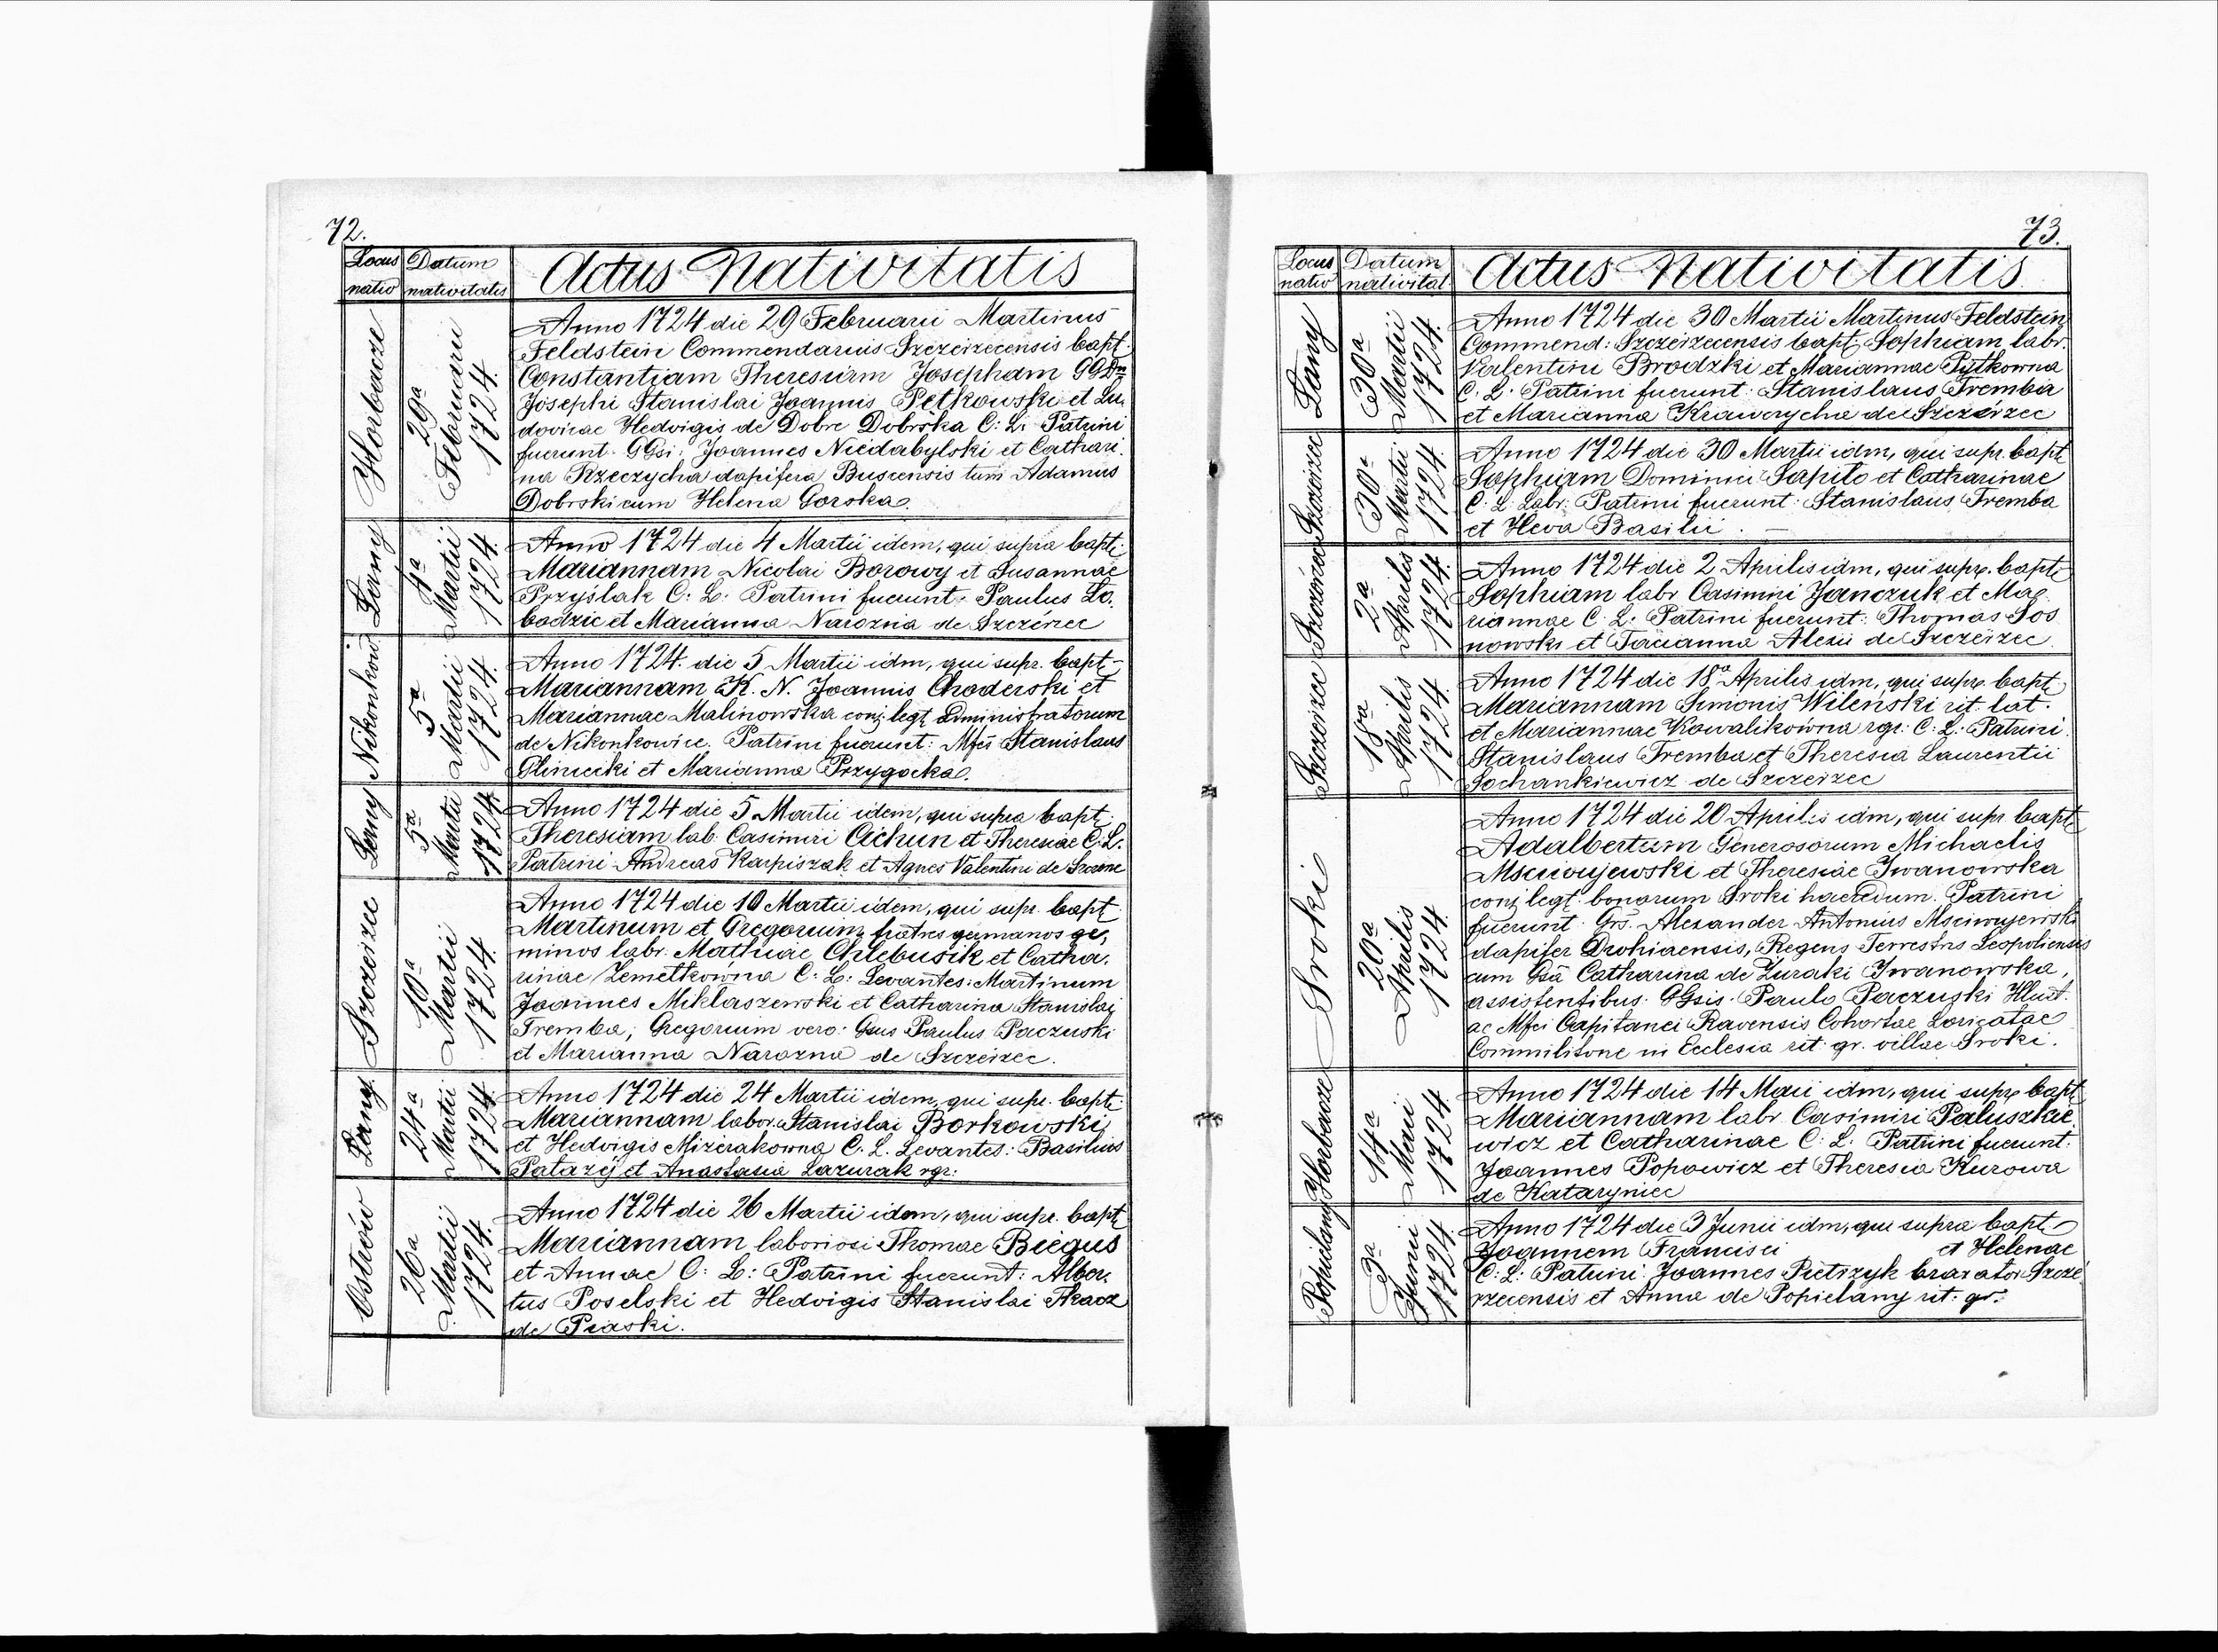 72.
Locus natio
Datum nativitatis
Actus Nativitatis
Horbacze
29a Februarii 1724.
Anno 1724 die 29 Februarii Martinus
Feldstein Commendarius Szczeirzecensis bapt.
Constantiam Theresiam Josepham GGDm
Josephi Stanislai Joannis Petkowski et Lu,
dovicae Hedvigis de Dobre Dobrska C: L: Patrini
fuerunt GGsi: Joannes Niedabylski et Cathari.
na Rzeczycha dapifera Buscensis tum Adamus
Dobrski cum Helena Gorska.
Łany
4a Martii 1724.
Anno 1724 die 4 Martii idem, qui supra bapt:
Mariannam Nicolai Borowy et Susannae
Przyślak C: L: Patrini fuerunt: Paulus Ło,
badzic et Marianna Narozna de Szczerzec
Nikonkow
5a Martii 1724.
Anno 1724. die 5 Martii idm, qui supr. bapt
Mariannam K. N. Joannis Choderski et
Mariannae Malinowska conj: legt. administratorum
de Nikonkowice. Patrini fuerunt: Mfcs Stanislaus
Gliniecki et Marianna Przygocka.
Łany
5a Martii 1724
Anno 1724 die 5 Martii idem, qui supra bapt.
Theresiam lab. Casimiri Cichun et Theresiae C: L.
Patrini Andreas Karpiszak et Agnes Valentini de
Szczeirzec
10a Martii 1724.
Anno 1724 die 10 Martii idem, qui supr. bapt
Martinum et Gregorium fratres germanos ge,
minos labr. Mathiae Chlebusik et Catha,
rinae Zemetkowna C: L: Levantes: Martinum
Joannes Miklaszewski et Catharina Stanislai
Tremba, Gregorium vero: Gsus Paulus Paczuski
et Marianna Narozna de Szczeirzec.
Łany
24a Martii 1724
Anno 1724 die 24 Martii idem, qui supr. bapt:
Mariannam labor. Stanislai Borkowski
et Hedvigis Mizerakowna C. L. Levantes: Basilius
Patarej et Anastasia Lazurak rgr:
Ostrów
26a Martii 1724.
Anno 1724 die 26 Martii idem, qui supr. bapt
Mariannam laboriosi Thomae Biegus
et Annae C: L: Patrini fuerunt: Alber,
tus Poselski et Hedvigis Stanislai Tkacz
de Piaski.
73.
Locus nativ
Datum nativitat
Actus Nativitatis
Łany
30a Martii 1724.
Anno 1724 die 30 Martii Martinus Feldstein
Commend: Szczeirzecensis bapt: Sophiam labr.
Valentini Brodzki et Mariannae Pytkowna
C. L. Patrini fuerunt: Stanislaus Tremba
et Marianna Krawczycha de Szczeirzec
Szczeirzec
30a Martii 1724
Anno 1724 die 30 Martii idm, qui supr. bapt
Sophiam Dominici Sapito et Catharinae
C. L. Labr: Patrini fuerunt: Stanislaus Tremba
et Heva Basilii.
Szczeirzec
2a Aprilis 1724.
Anno 1724 die 2 Aprilis idm, qui supr. bapt
Sophiam labr Casimiri Janczuk et Ma,
riannae C: L: Patrini fuerunt: Thomas Sos
nowski et Tacianna Alexii de Szczeirzec.
Szczeirzec
18a Aprilis 1724.
Anno 1724 die 18a Aprilis idm, qui supr. bapt.
Mariannam Simonis Wileński rit. lat.
et Mariannae Kowalikówna rgr: C: L: Patrini
Stanislaus Tremba et Theresia Laurentii
Sochankiewicz de Szczeirzec
Sroki
20a Aprilis 1724
Anno 1724 die 20 Aprilis idm, qui supr bapt
Adalbertum Generosorum Michaelis
Msciwujewski et Theresiae Iwanowska
conj: legt. bonorum Sroki haeredum. Patrini
fuerunt: Grs. Alexander Antonius Msciwujewski
dapifer Drohiaensis, Regens Terrestris Leopoliensis
cum Gsa Catharina de Zuraki Iwanowska,
assistentibus GGsis. Paulo Paczuski Illust.
ac Mfci Capitanei Ravensis Cohortae Loricatae
Commilitone in Ecclesia rit: gr. villae Sroki.
Horbacze
14a Maii 1724
Anno 1724 die 14 Maii idm, qui supr. bapt
Mariannam labr Casimiri Paluszkie,
wicz et Catharinae C: L: Patrini fuerunt:
Joannes Popowicz et Theresia Kurowa
de Kataryniec
Popielany
3a Junii 1724.
Anno 1724 die 3 Junii idm, qui supra bapt.
Joannem Francisci et Helenae
C: L: Patrini Joannes Pietrzyk braxator Szcze
rzecensis et Anna de Popielany rit: gr.